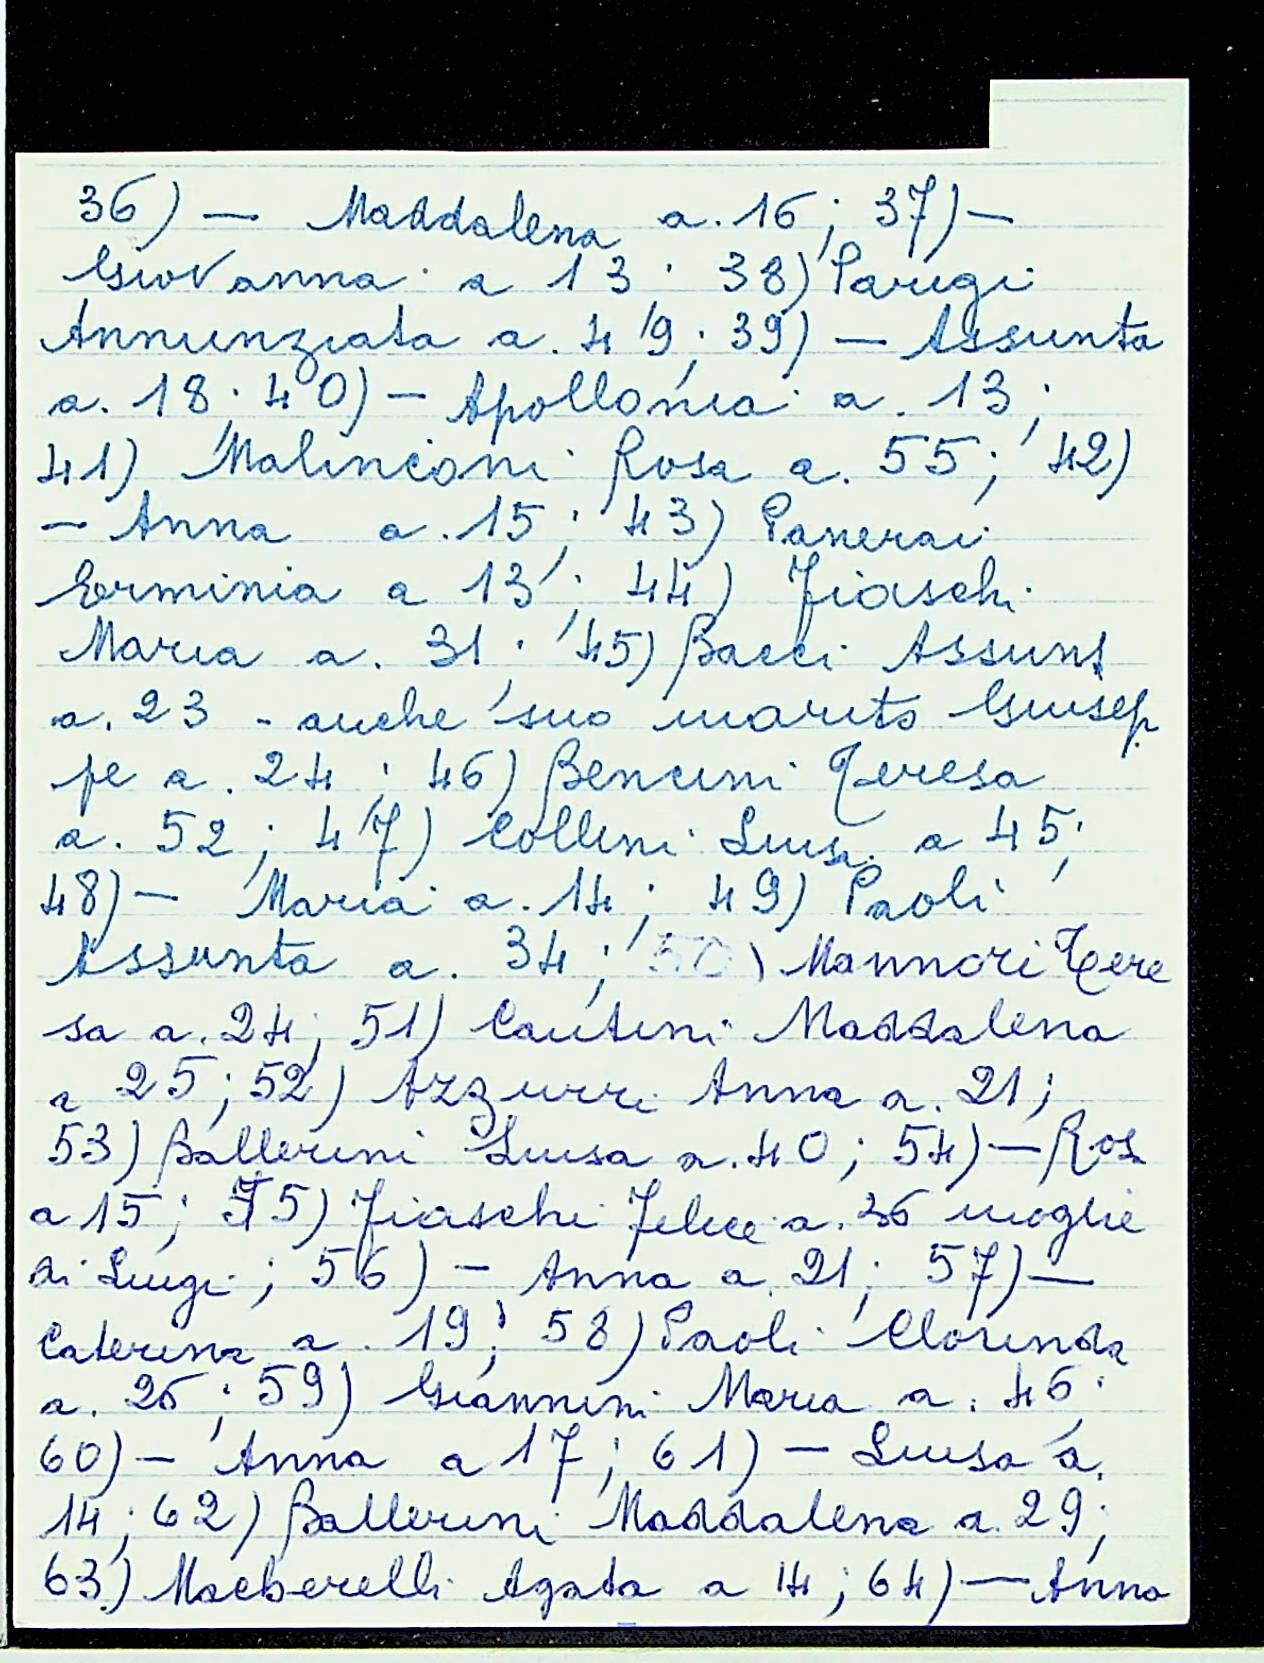 36) — Maddalena a. 16; 37) —
Giovanna a 13; 38) Parigi
Annunziata a. 49; 39) — Assunta
a. 18; 40) — Apollonia a. 13;
41) Malinconi Rosa a. 55; 42)
— Anna a. 15; 43) Panerai
Erminia a 13; 44) Fiaschi
Maria a. 31; 45) Bacci Assunt
a. 23 - anche suo marito Giusep
pe a. 24; 46) Bencini Teresa
a. 52; 47) Collini Luisa a 45;
48) — Maria a. 14; 49) Paoli
Assunta a. 34; 50) Mannori Tere
sa a. 24; 51) Cantini Maddalena
a 25; 52) Azzurri Anna a. 21;
53) Ballerini Luisa a. 40; 54) — Rosa
a 15; 55) Fiaschi Felice a. 36 moglie
di Luigi; 56) — Anna a. 21; 57) —
Caterina a. 19; 58) Paoli Clorinda
a. 26; 59) Giannini Maria a. 46;
60) — Anna a 17; 61) — Luisa a.
14; 62) Ballerini Maddalena a. 29;
63) Macberelli Agata a 14; 64) — Anna